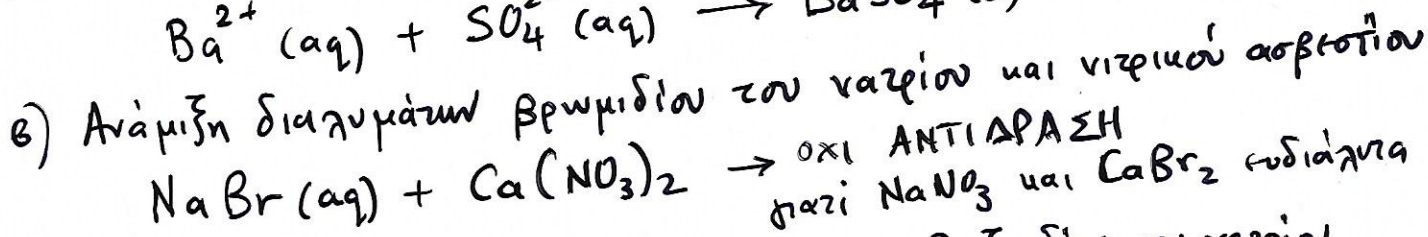 Ba²⁺ (aq) + SO₄²⁻ (aq) →
β) Ανάμιξη διαλυμάτων βρωμιδίου του νατρίου και νιτρικού ασβεστίου
NaBr (aq) + Ca(NO₃)₂ → ΟΧΙ ΑΝΤΙΔΡΑΣΗ
γιατί NaNO₃ και CaBr₂ ευδιάλυτα